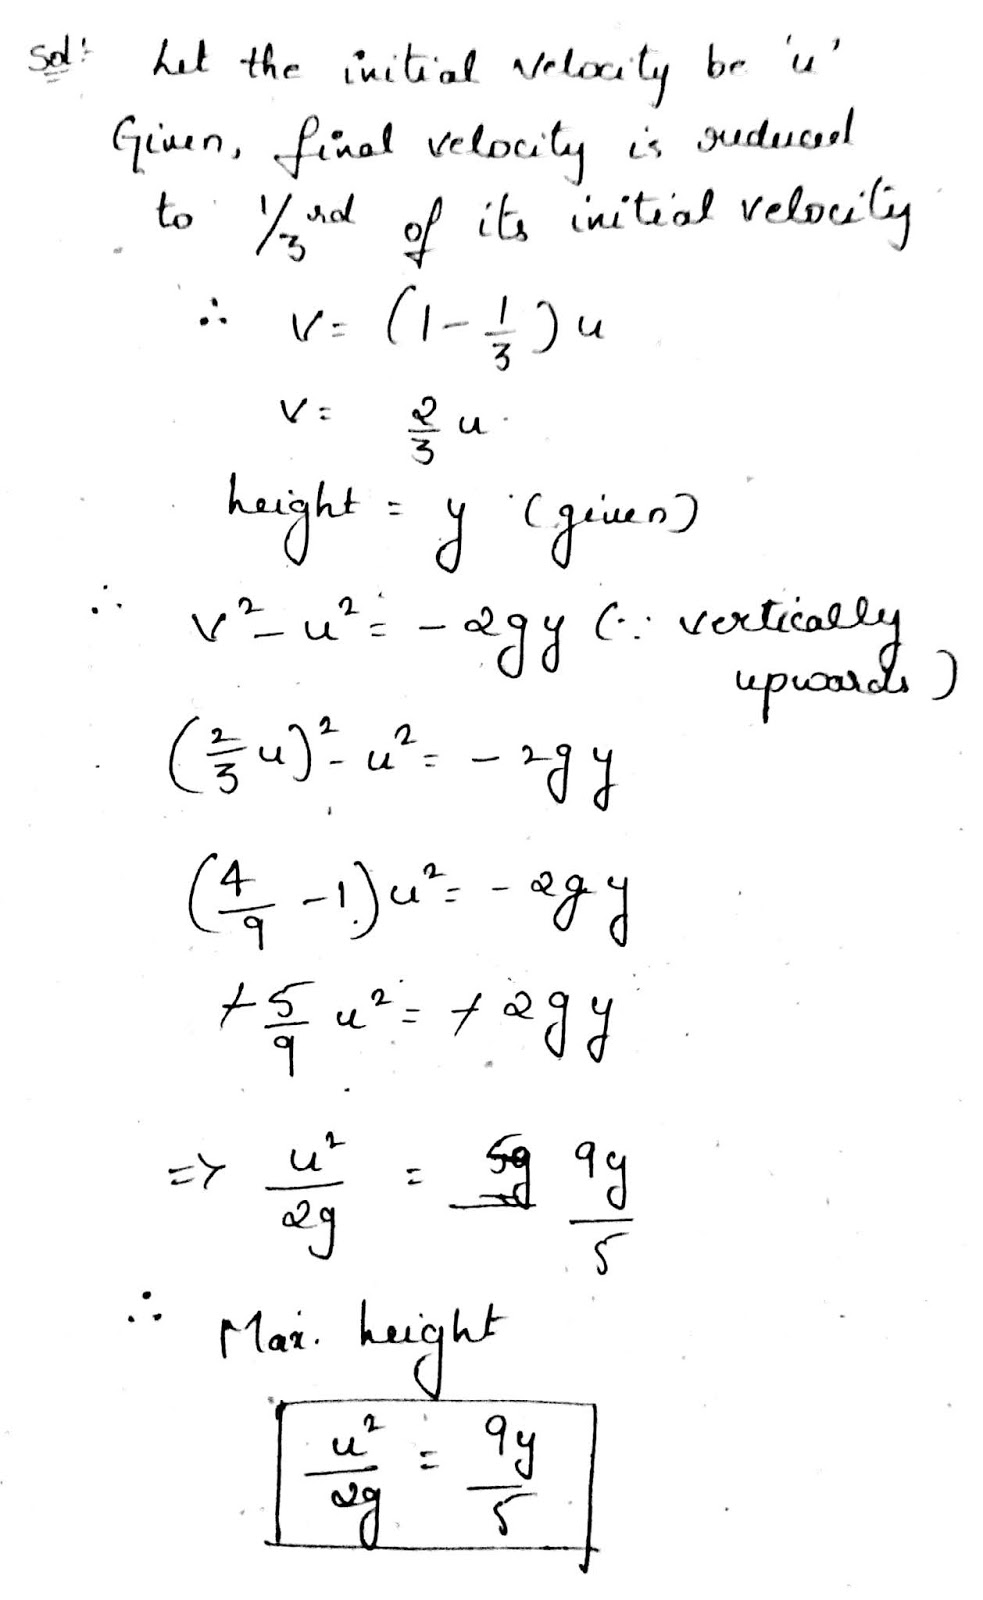 Sol:- Let the initial velocity be 'u'
Given, final velocity is reduced
to 1/3rd of its initial velocity
∴ V = (1 - 1/3) u
V = 2/3 u
height = y (given)
∴ v² - u² = - 2gy (∵ vertically
upwards)
(2/3 u)² - u² = - 2gy
(4/9 - 1) u² = - 2gy
+ 5/9 u² = + 2gy
=> u²/2g = 9y/5
∴ Max. height
u²/2g = 9y/5